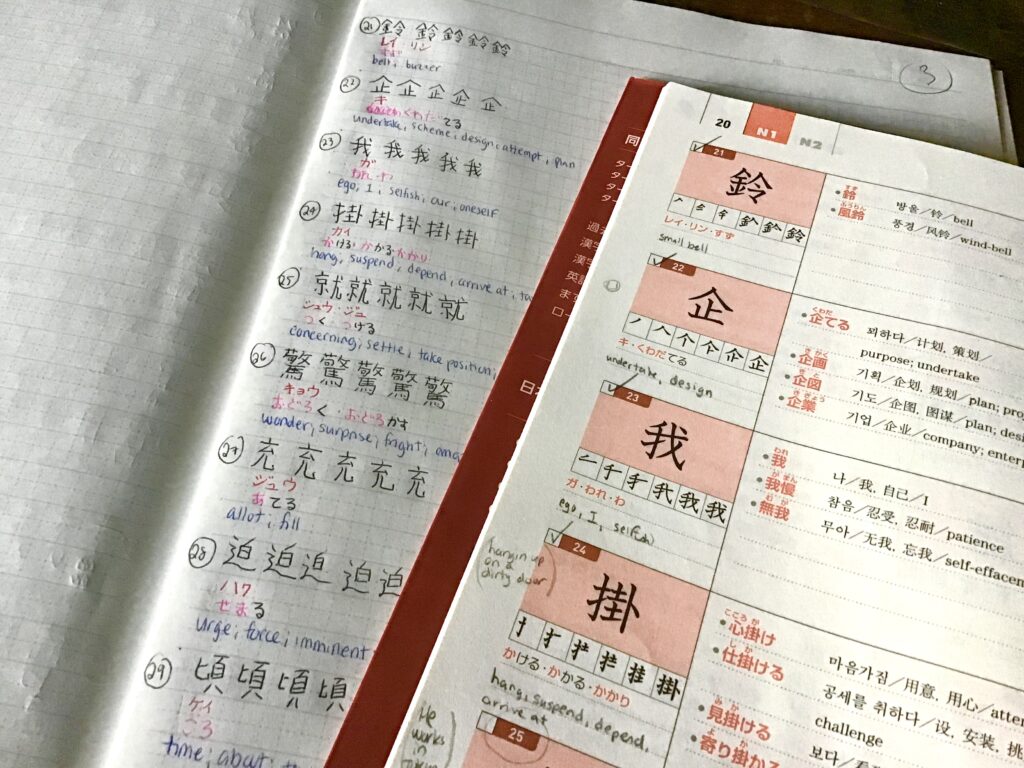 3
21 鈴 鈴 鈴 鈴 鈴
レイ・リン
すず
bell; buzzer
22 企 企 企 企 企
キ
くわだてる
undertake; scheme; design; attempt; plan
23 我 我 我 我 我
ガ
われ・わ
ego, I; selfish; our; oneself
24 掛 掛 掛 掛 掛
カイ
かける・かかる・かかり
hang; suspend; depend; arrive at;
25 就 就 就 就 就
シュウ・ジュ
つく つける
concerning; settle; take position;
26 驚 驚 驚 驚 驚
キョウ
おどろく・おどろかす
wonder; surprise; fright;
27 充 充 充 充 充
ジュウ
あてる
allot; fill
28 迫 迫 迫 迫 迫
ハク
せまる
urge; force; imminent
29 頃 頃 頃 頃
ケイ
ころ
time; about;
20 N1 N2
21
鈴
レイ・リン・すず
small bell
すず
•鈴 방울/铃/bell
ふうりん
•風鈴 풍경/风铃/wind-bell
22
企
キ・くわだてる
undertake, design
くわだ
•企てる 꾀하다/计划, 策划/
purpose; undertake
きかく
•企画 기획/企划, 规划/plan;
きと
•企図 기도/企图, 图谋/plan;
きぎょう
•企業 기업/企业/company;
23
我
ガ・われ・わ
ego, I, selfish
われ
•我 나/我, 自己/I
がまん
•我慢 참음/忍受, 忍耐/patience
むが
•無我 무아/无我, 忘我/
24
掛
かける・かかる・かかり
hang, suspend, depend,
arrive at
hangin up
on a
dirty door
こころが
•心掛け 마음가짐/用意, 用心/
しか
•仕掛ける 공세를 취하다/设, 安装,
challenge
みか
•見掛ける
よ か
•寄り掛かる
25
He
works
in